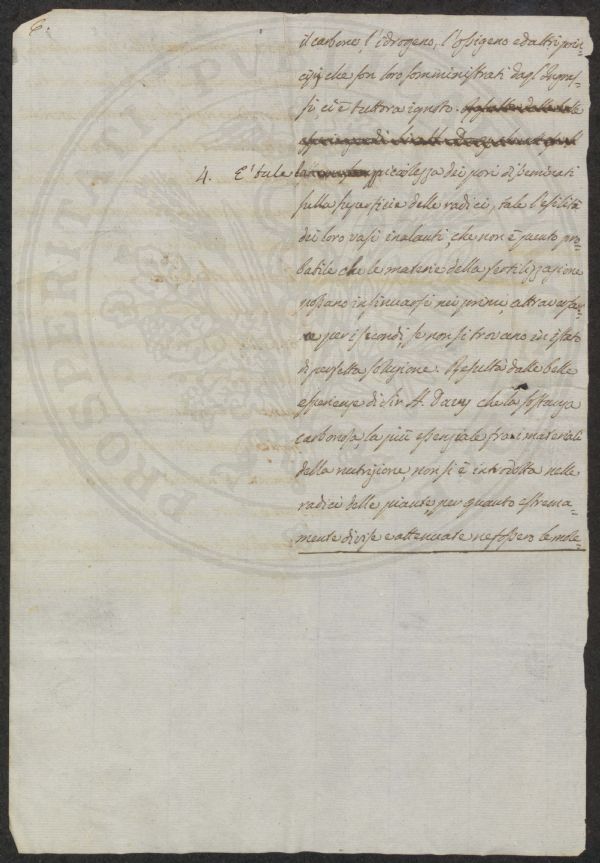 6.
il carbone, l'idrogeno, l'ossigeno ed altri prin=
cipj che son loro somministrati dagl'Ingras=
si, ci è tuttora ignoto.
4. E' tale la piccolezza dei pori disseminati
sulla superficie delle radici, tale l'esilità
dei loro vasi inalanti che non è punto pro=
babile che le materie della fertilizzazione
possano insinuarsi nei primi, attraversa=
re per i secondi, se non si trovano in istato
di perfetta soluzione. Resulta dalle belle
esperienze di Sir H. Davy che la sostanza
carbonosa, la più essenziale fra i materiali
della nutrizione, non si è introdotta nelle
radici delle piante, per quanto estrema=
mente divise e attenuate ne fossero le mole=
PROSPERITATI PUB